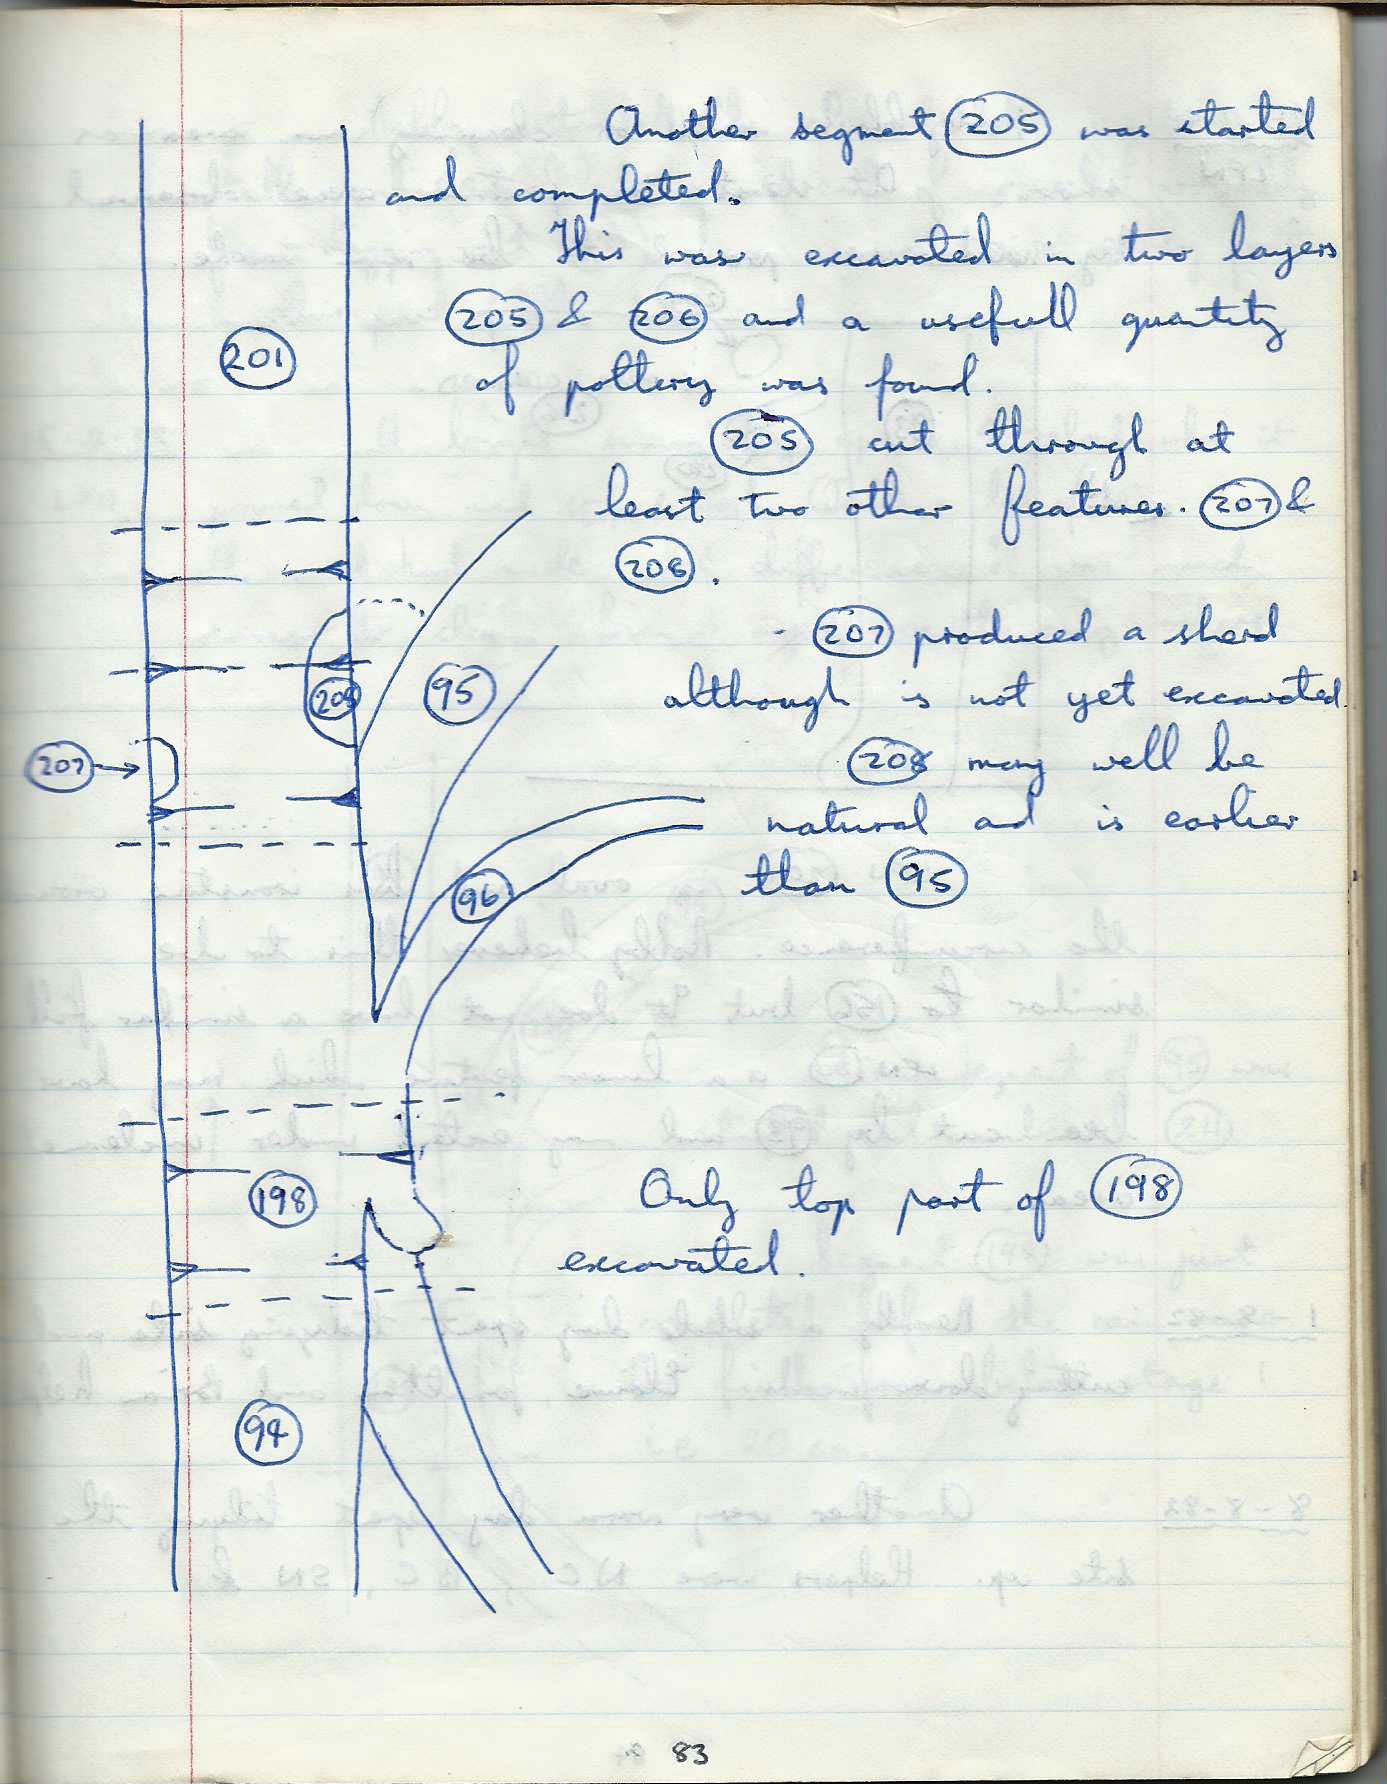 Another segment 205 was started
and completed.
This was excavated in two layers
205 & 206 and a usefull quantity
of pottery was found.
205 cut through at
least two other features. 207 &
208.
- 207 produced a sherd
although is not yet excavated.
208 may well be
natural ad is earlier
than 95
Only top part of 198
excavated.
201
208
95
207
96
198
94
83